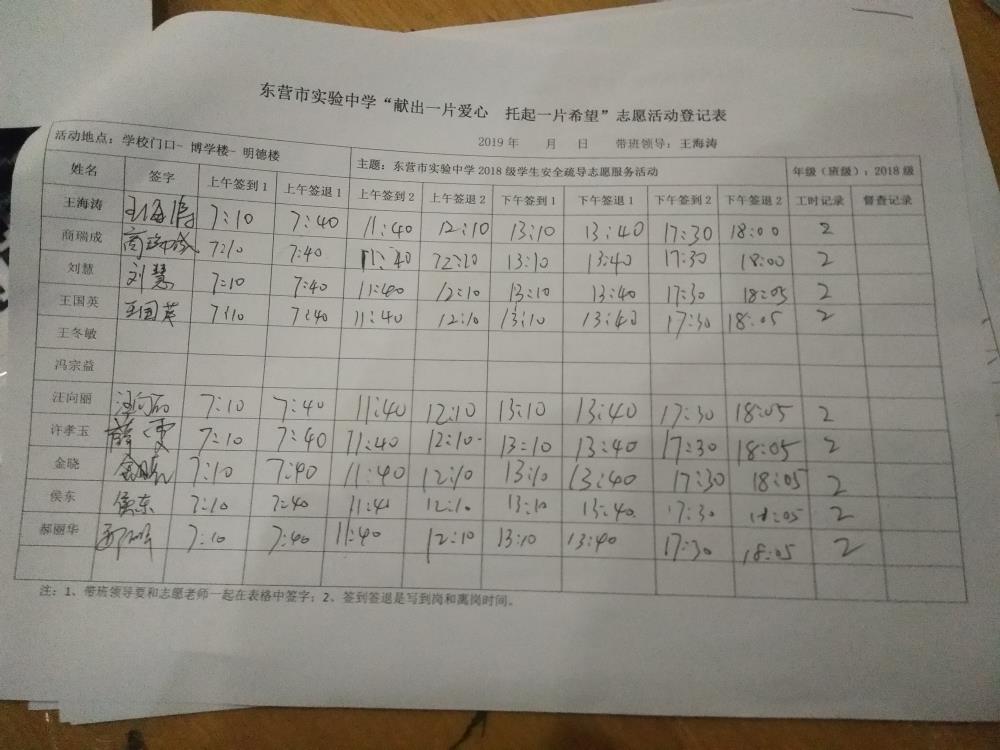 东营市实验中学“献出一片爱心 托起一片希望”志愿活动登记表
2019 年 月 日 带班领导：王海涛
活动地点：学校门口- 博学楼- 明德楼 主题：东营市实验中学 2018 级学生安全疏导志愿服务活动 年级（班级）：2018 级
姓名 签字 上午签到 1 上午签退 1 上午签到 2 上午签退 2 下午签到 1 下午签退 1 下午签到 2 下午签退 2 工时记录 督查记录
王海涛 王海涛 7:10 7:40 11:40 12:10 13:10 13:40 17:30 18:00 2
商瑞成 商瑞成 7:10 7:40 11:40 12:10 13:10 13:40 17:30 18:00 2
刘慧 刘慧 7:10 7:40 11:40 12:10 13:10 13:40 17:30 18:05 2
王国英 王国英 7:10 7:40 11:40 12:10 13:10 13:40 17:30 18:05 2
王冬敏
冯宗益
汪向丽 汪向丽 7:10 7:40 11:40 12:10 13:10 13:40 17:30 18:05 2
许孝玉 7:10 7:40 11:40 12:10 13:10 13:40 17:30 18:05 2
金晓 金晓 7:10 7:40 11:40 12:10 13:10 13:40 17:30 18:05 2
侯东 侯东 7:10 7:40 11:41 12:10 13:10 13:40 17:30 18:05 2
郝丽华 7:10 7:40 11:40 12:10 13:10 13:40 17:30 18:05 2
注：1、带班领导要和志愿老师一起在表格中签字；2、签到签退是写到岗和离岗时间。